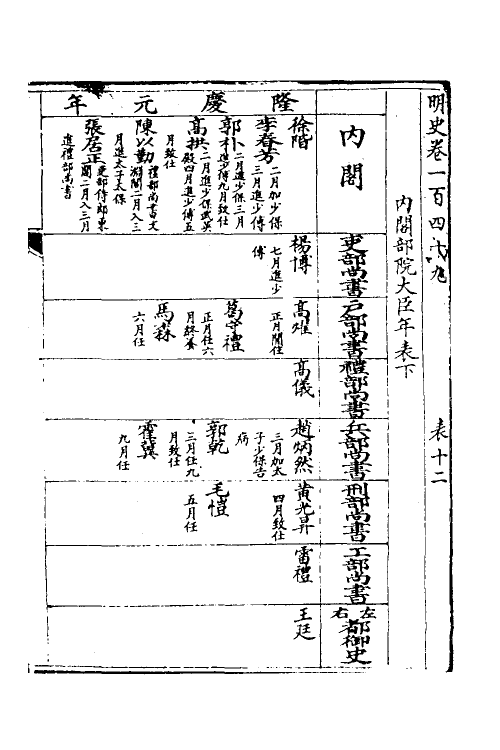 明史卷一百四十九
表十二
內閣部院大臣年表下
內閣
吏部尚書
戶部尚書
禮部尚書
兵部尚書
刑部尚書
工部尚書
左右都御史
隆慶元年
徐階
李春芳 二月加少保三月進少傅
郭朴 二月進少保三月進少傅九月致仕
高拱 二月進少保武英殿四月進少傅五月致仕
陳以勤 禮部尚書文淵閣二月入三月進太子太保
張居正 吏部侍郎東閣二月入三月進禮部尚書
楊博 七月進少傅
高燿 正月閒住
葛守禮 正月任六月終養
馬森 六月任
高儀
趙炳然 三月加太子少保告病
郭乾 三月任九月致仕
霍冀 九月任
黃光昇 四月致仕
毛愷 五月任
雷禮
王廷